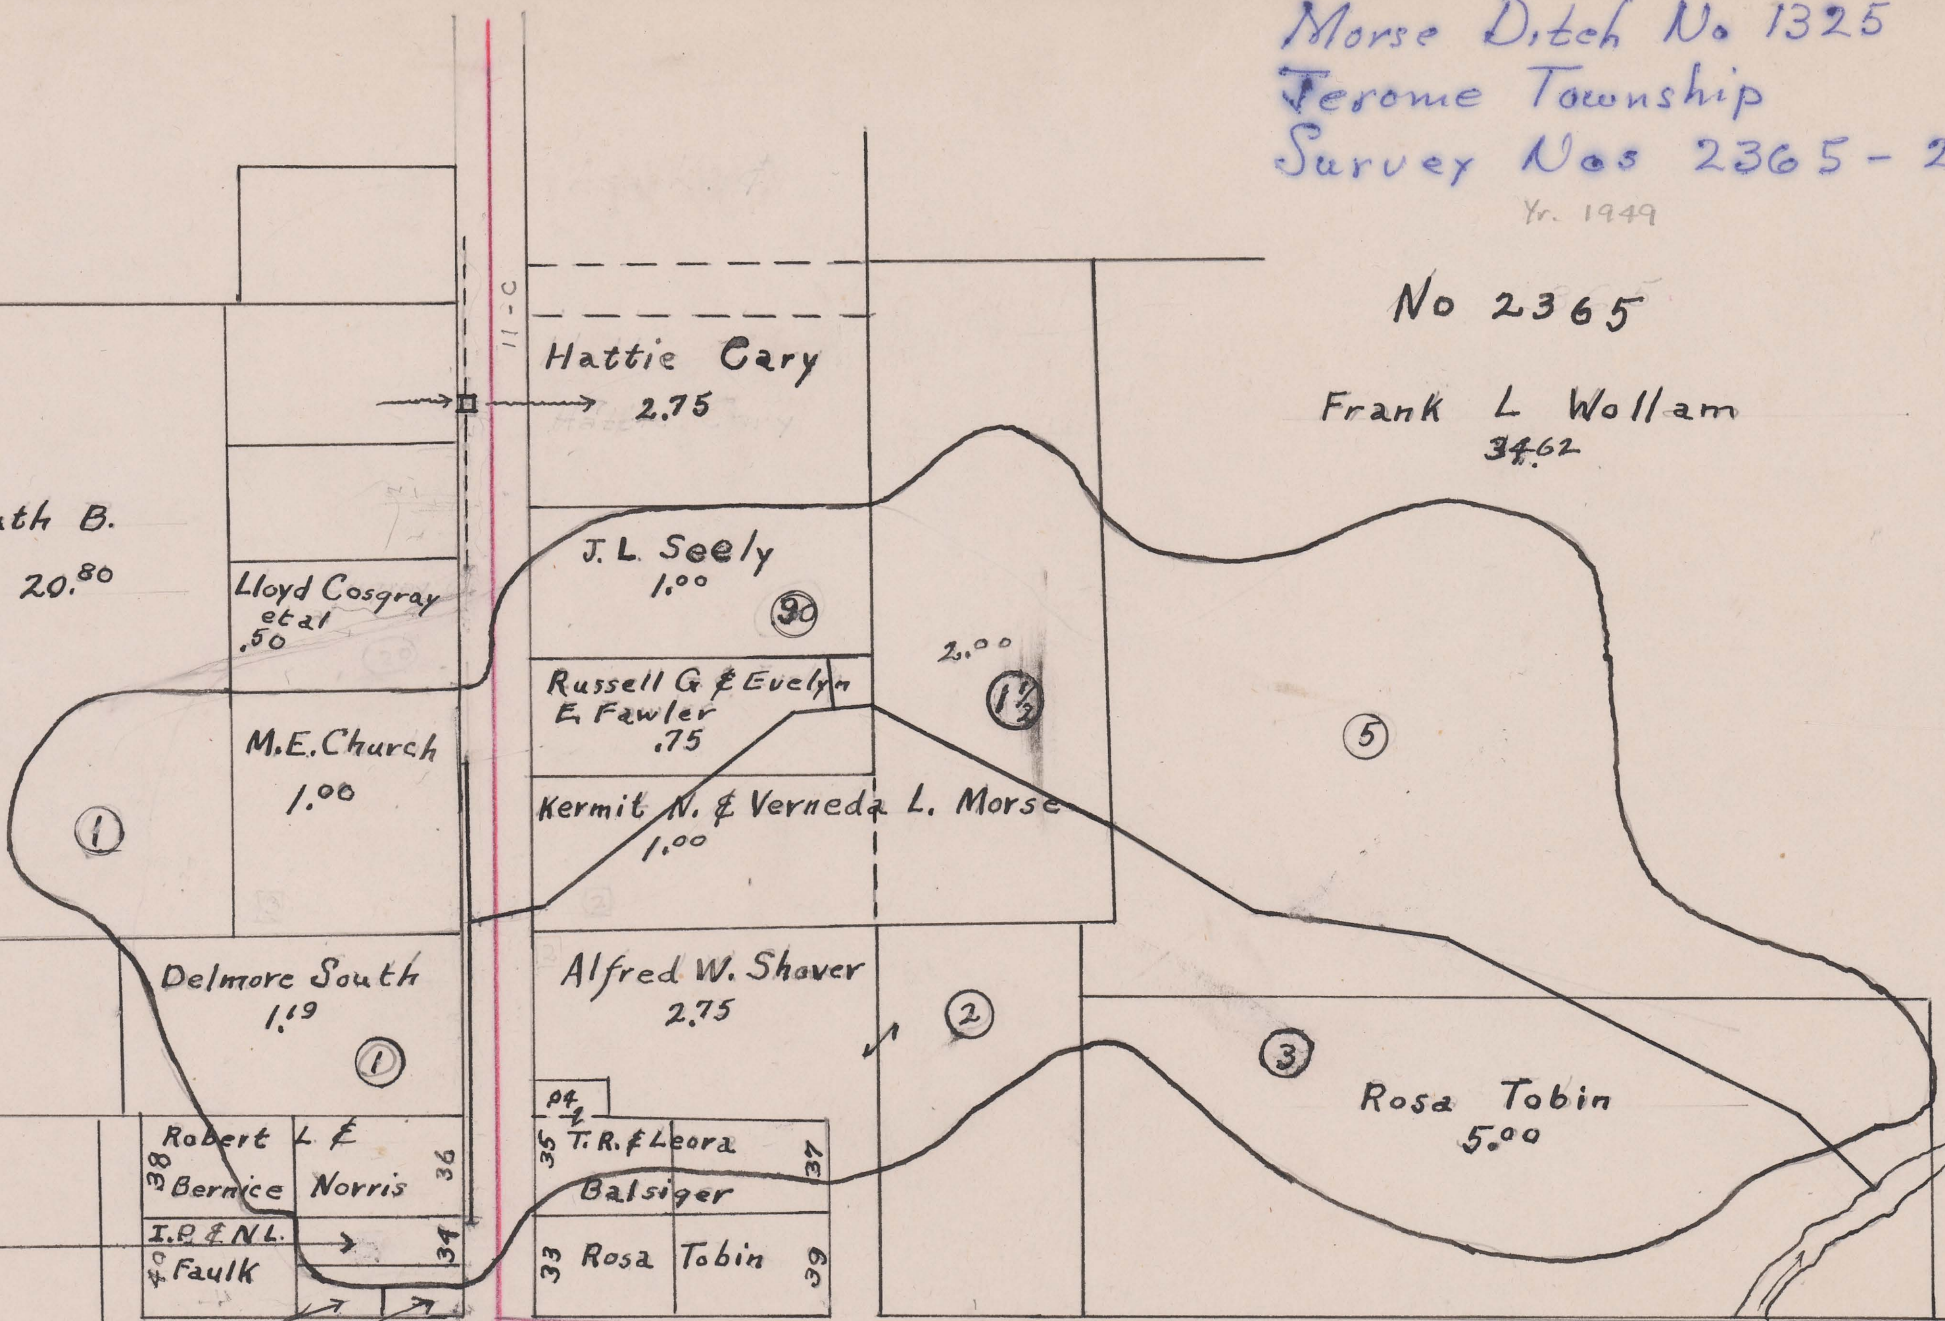 Morse Ditch No 1325
Jerome Township
Survey Nos 2365 - 2
Yr. 1949
No 2365
Frank L Wollam
34.62
11-C
Hattie Cary
2.75
th B.
20.80
Lloyd Cosgray
et al
.50
J. L. Seely
1.00
90
2.00
1 1/2
Russell G & Evelyn
E. Fawler
.75
5
M.E. Church
1.00
1
Kermit N. & Verneda L. Morse
1.00
Delmore South
1.19
1
Alfred W. Shover
2.75
2
3
Rosa Tobin
5.00
Robert L &
Bernice Norris
38
36
35
T. R. & Leora
Balsiger
37
I.P. & N L.
Faulk
40
34
33
Rosa Tobin
39